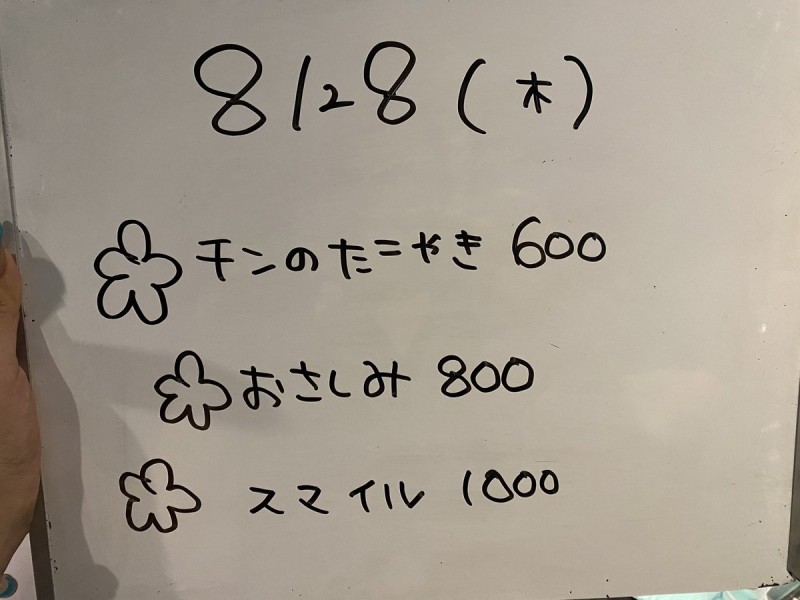 8/28(木)
チンのたこやき 600
おさしみ 800
スマイル 1000